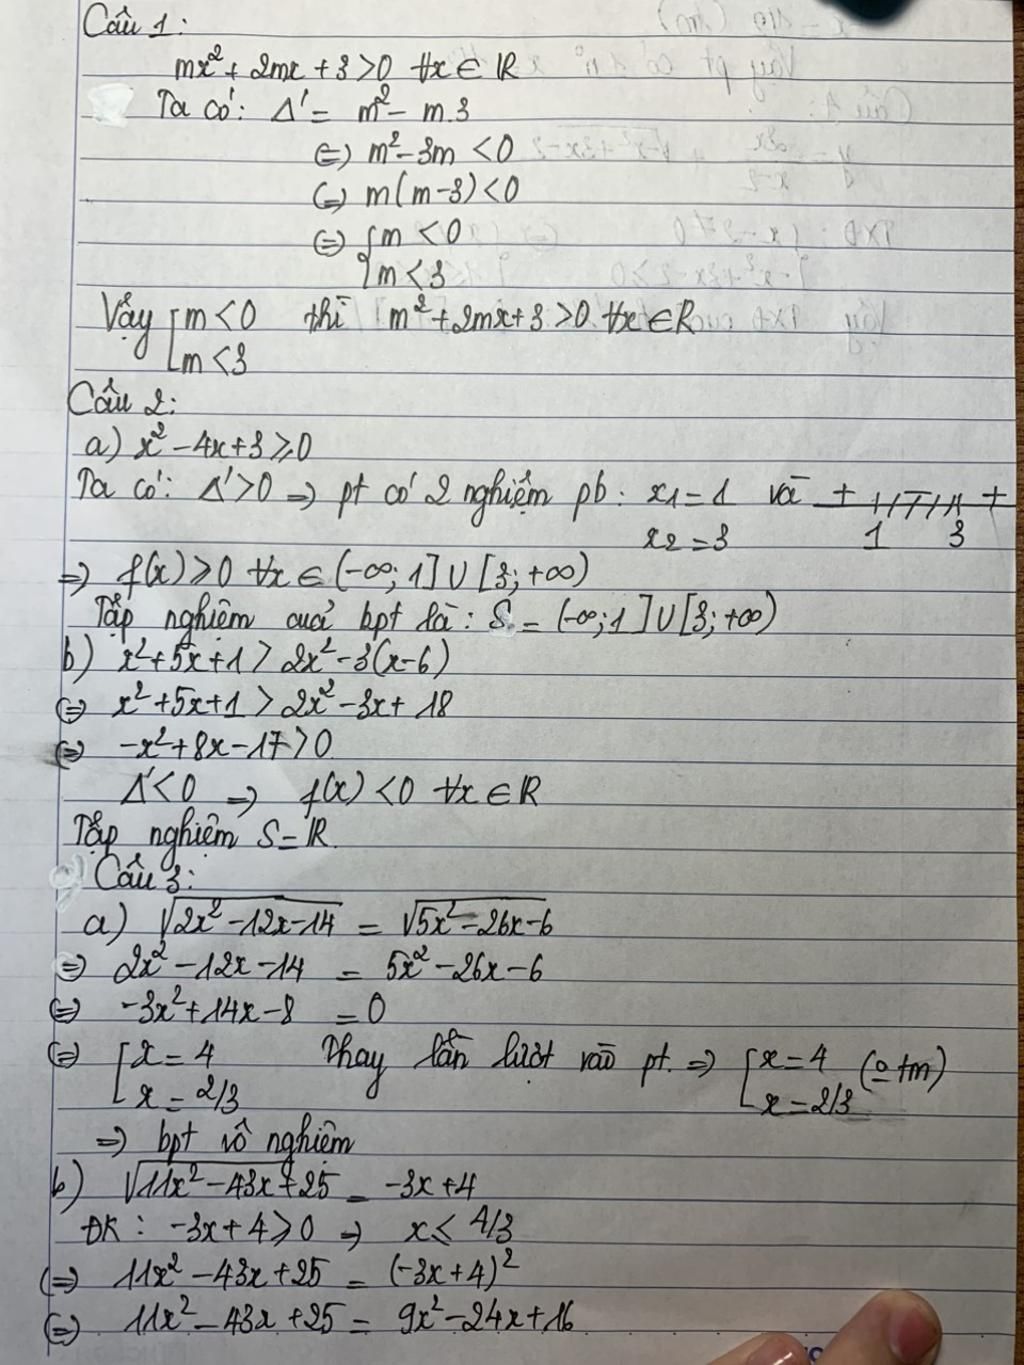 Câu 1:
mx² + 2mx + 3 > 0 ∀x ∈ ℝ
Ta có: Δ' = m² - m.3
⇔ m² - 3m < 0
⇔ m(m-3) < 0
⇔ { m < 0
m < 3
Vậy [ m < 0 thì m² + 2mx + 3 > 0 ∀x ∈ R
m < 3
Câu 2:
a) x² - 4x + 3 ⩾ 0
Ta có: Δ' > 0 => pt có 2 nghiệm pb: x1 = 1 và + - +
x2 = 3 1 3
=> f(x) ⩾ 0 ∀x ∈ (-∞; 1] ∪ [3; +∞)
Tập nghiệm cuả bpt là: S = (-∞; 1] ∪ [3; +∞)
b) x² + 5x + 1 > 2x² - 3(x-6)
⇔ x² + 5x + 1 > 2x² - 3x + 18
⇔ -x² + 8x - 17 > 0
Δ' < 0 => f(x) < 0 ∀x ∈ ℝ
Tập nghiệm S = ℝ.
Câu 3:
a) √(2x² - 12x - 14) = √(5x² - 26x - 6)
=> 2x² - 12x - 14 = 5x² - 26x - 6
⇔ -3x² + 14x - 8 = 0
⇔ [ x = 4 Thay lần lượt vào pt. => [ x = 4 (o tm)
x = 2/3 x = 2/3
=> bpt vô nghiệm
b) √(11x² - 43x + 25) = -3x + 4
ĐK: -3x + 4 ⩾ 0 => x ⩽ 4/3
⇔ 11x² - 43x + 25 = (-3x + 4)²
⇔ 11x² - 43x + 25 = 9x² - 24x + 16